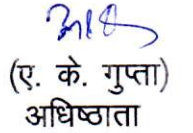 (ए. के. गुप्ता)
अधिष्ठाता